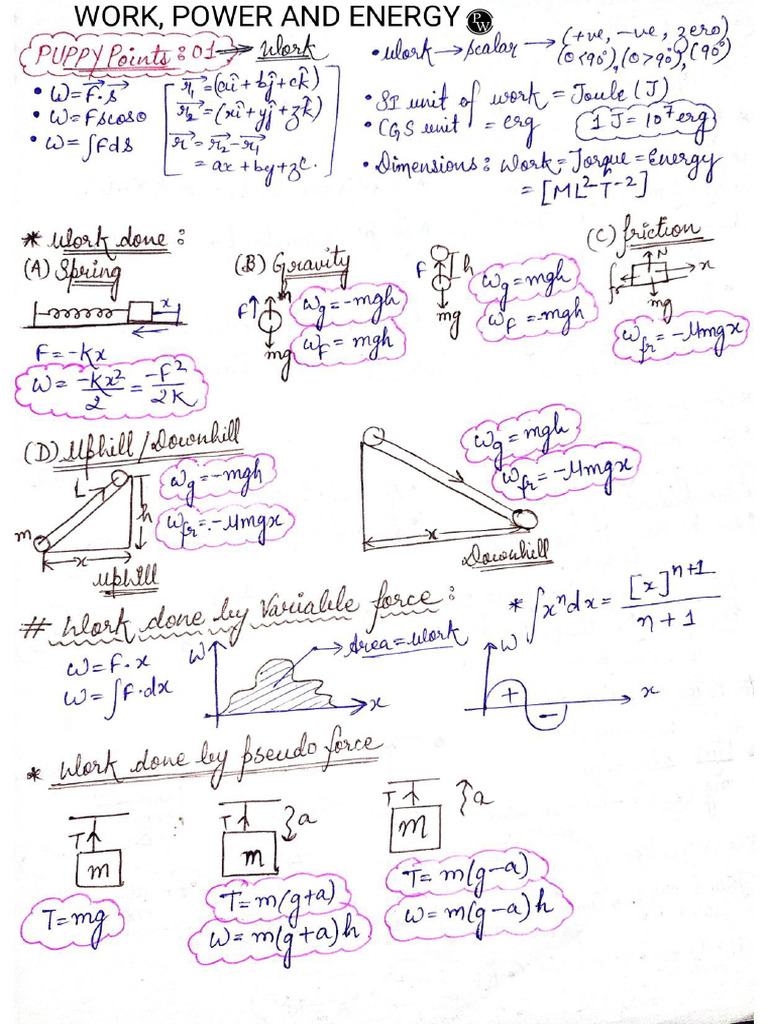 WORK, POWER AND ENERGY PW
PUPPY Points : 01 → Work
• W = F⃗.s⃗
• W = Fscosθ
• W = ∫Fds
r₁⃗ = (aî + bĵ + ck̂)
r₂⃗ = (xî + yĵ + zk̂)
r⃗ = r₂⃗ - r₁⃗
= ax + by + zc.
• Work → Scalar → (+ve, -ve, zero)
(θ<90°), (θ>90°), (90°)
• SI unit of work = Joule (J)
• CGS unit = erg
1 J = 10⁷ erg
• Dimensions : Work = Torque = Energy
= [ML²T⁻²]
* Work done :
(A) Spring
x
F = -Kx
W = -Kx²/2 = -F²/2K
(B) Gravity
F↑
mg
Wg = -mgh
WF = mgh
F
h
mg
Wg = mgh
WF = -mgh
(C) friction
N
x
fr
mg
Wfr = -μmgx
(D) Uphill / Downhill
L
m
h
x
Uphill
Wg = -mgh
Wfr = -μmgx
x
Downhill
Wg = mgh
Wfr = -μmgx
# Work done by Variable force :
W = F.x
W = ∫F.dx
W
x
Area = work
* ∫xⁿdx = [x]ⁿ⁺¹/n+1
W
+
-
x
* Work done by pseudo force
T
m
T = mg
T
m
a
T = m(g+a)
W = m(g+a)h
T
m
a
T = m(g-a)
W = m(g-a)h